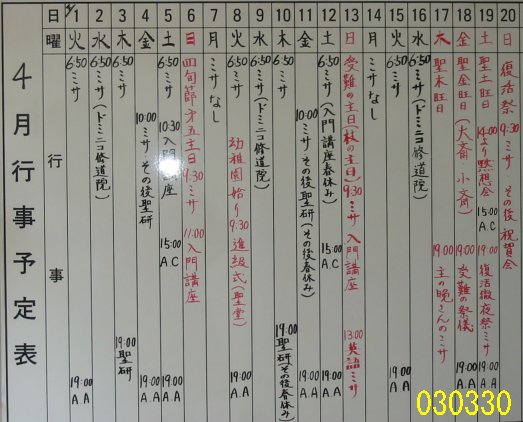 4月行事予定表
日 曜 行事
4/1 火 6:50 ミサ 19:00 A.A
2 水 6:50 ミサ(ドミニコ修道院)
3 木 6:50 ミサ 19:00 聖研
4 金 10:00 ミサ その後聖研 19:00 A.A
5 土 6:50 ミサ 10:30 入門講座 15:00 A.C 19:00 A.A
6 日 四旬節第五主日 9:30 ミサ 11:00 入門講座
7 月 ミサなし
8 火 6:50 ミサ 幼稚園始り 9:30 進級式(聖堂) 19:00 A.A
9 水 6:50 ミサ(ドミニコ修道院)
10 木 6:50 ミサ 19:00 聖研(その後春休み)
11 金 10:00 ミサ その後聖研(その後春休み) 19:00 A.A
12 土 6:50 ミサ(入門講座春休み) 15:00 A.C 19:00 A.A
13 日 受難の主日(枝の主日) 9:30 ミサ 入門講座 13:00 英語ミサ
14 月 ミサなし
15 火 6:50 ミサ 19:00 A.A
16 水 6:50 ミサ(ドミニコ修道院)
17 木 聖木曜日 19:00 主の晩さんのミサ
18 金 聖金曜日(大斎 小斎) 19:00 受難の祭儀 19:00 A.A
19 土 聖土曜日 14:00より黙想会 15:00 A.C 19:00 復活徹夜祭ミサ 19:00 A.A
20 日 復活祭 9:30 ミサ・その後祝賀会
030330